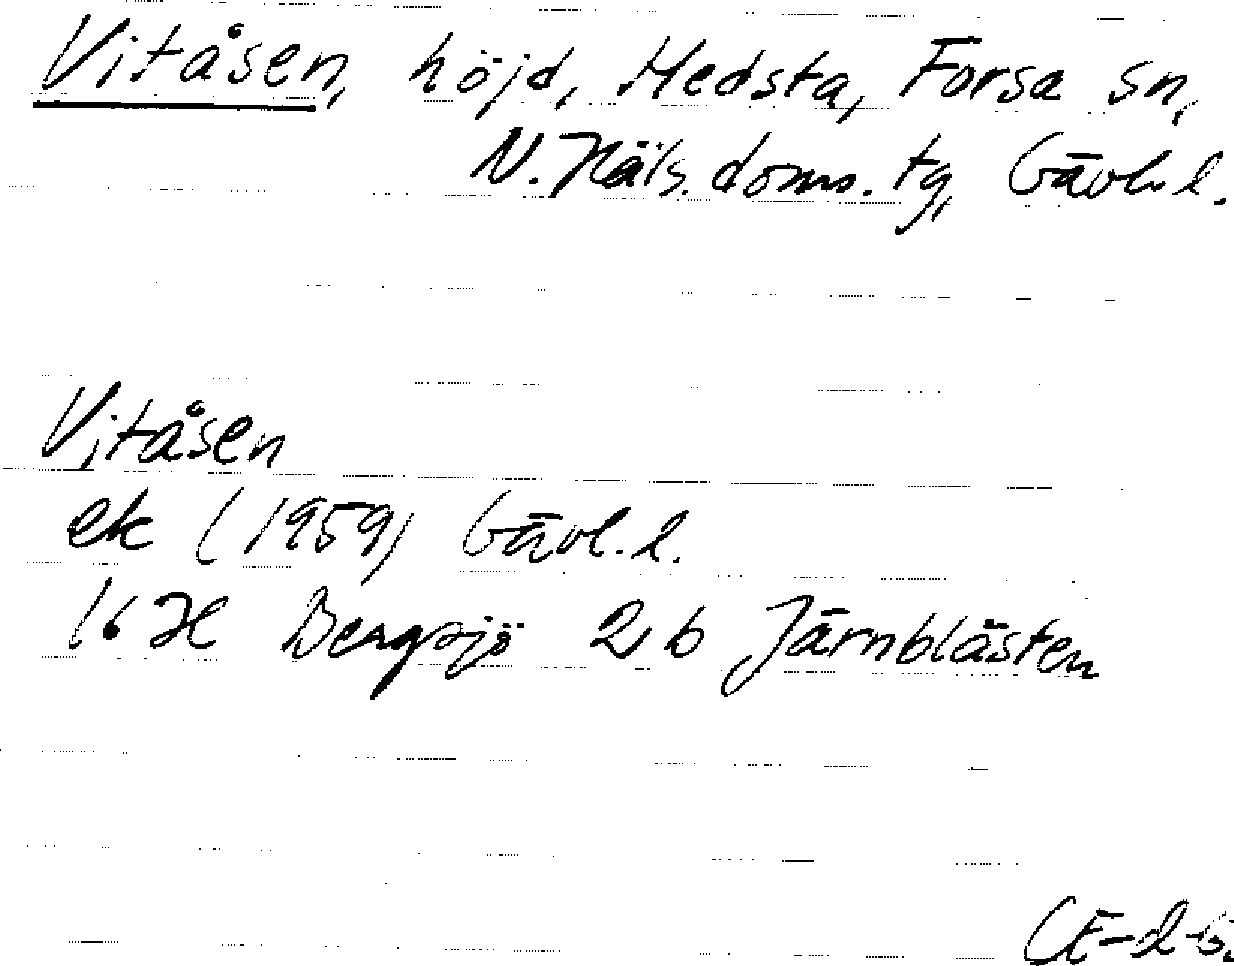 Vitåsen, höjd, Hedsta, Forsa sn,
N. Häls. doms. tg, Gävl. l.
Vitåsen
ek (1959) Gävl. l.
16H Bergsjö 2b Järnblästen